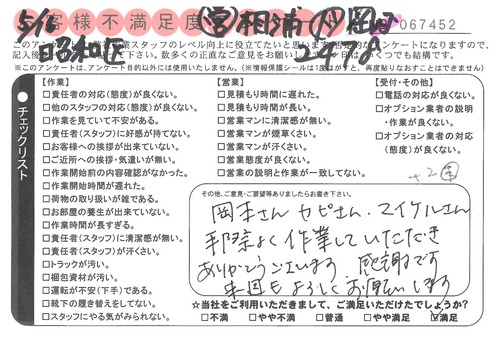 5/16 お客様不満足度 ㊂相浦 岡田 067452
昭和区
このアンケートは
全てのスタッフのレベル向上に役立てたいと思います
アンケートになりますので、
数多くの正直なご意見をお願い
つでも結構です。
(※このアンケートは、アンケート目的以外には使用いたしません。)(※情報保護シールは1度はがすと、再度貼りなおすことはできません)
チェックリスト
【作業】
□責任者の対応(態度)が良くない。
□他のスタッフの対応(態度)が良くない。
□作業を見ていて不安がある。
□責任者(スタッフ)に好感が持てない。
□お客様への挨拶が出来ていない。
□ご近所への挨拶・気遣いが無い。
□作業開始前の内容確認がなかった。
□作業開始時間が遅れた。
□荷物の取り扱いが雑である。
□お部屋の養生が出来ていない。
□作業時間が長すぎる。
□責任者(スタッフ)に清潔感が無い。
□責任者(スタッフ)が汗くさい。
□トラックが汚い。
□梱包資材が汚い。
□運転が不安(下手)である。
□靴下の履き替えをしてない。
□スタッフにやる気がみられない。
【営業】
□見積もり時間に遅れた。
□見積もり時間が長い。
□営業マンに清潔感が無い。
□営業マンが煙草くさい。
□営業マンが汗くさい。
□営業態度が良くない。
□営業の説明と作業が一致してない。
【受付・その他】
□電話の対応が良くない。
□オプション業者の説明
・作業が良くない。
□オプション業者の対応
(態度)が良くない。
その他、ご意見・ご要望等ありましたらお書き下さい。
岡本さん カピさん、マイケルさん
手際よく作業していただき
ありがとうございます 感謝です
来週もよろしくお願いします
☆当社をご利用いただきまして、ご満足いただけたでしょうか?
□不満 □やや不満 □普通 □やや満足 ☑満足